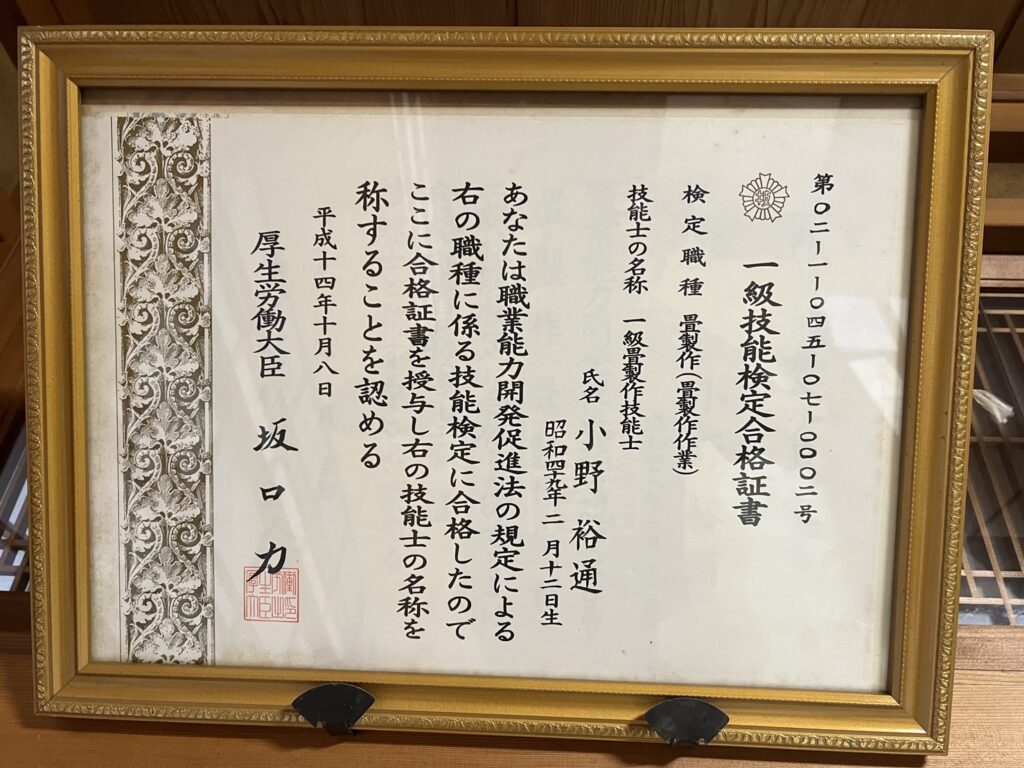 第〇二一一一〇四五一〇七一〇〇〇二号
一級技能検定合格証書
検定職種 畳製作(畳製作作業)
技能士の名称 一級畳製作技能士
氏名 小野裕通
昭和四十九年二月十二日生
あなたは職業能力開発促進法の規定による
右の職種に係る技能検定に合格したので
ここに合格証書を授与し右の技能士の名称を
称することを認める
平成十四年十月八日
厚生労働大臣 坂口力